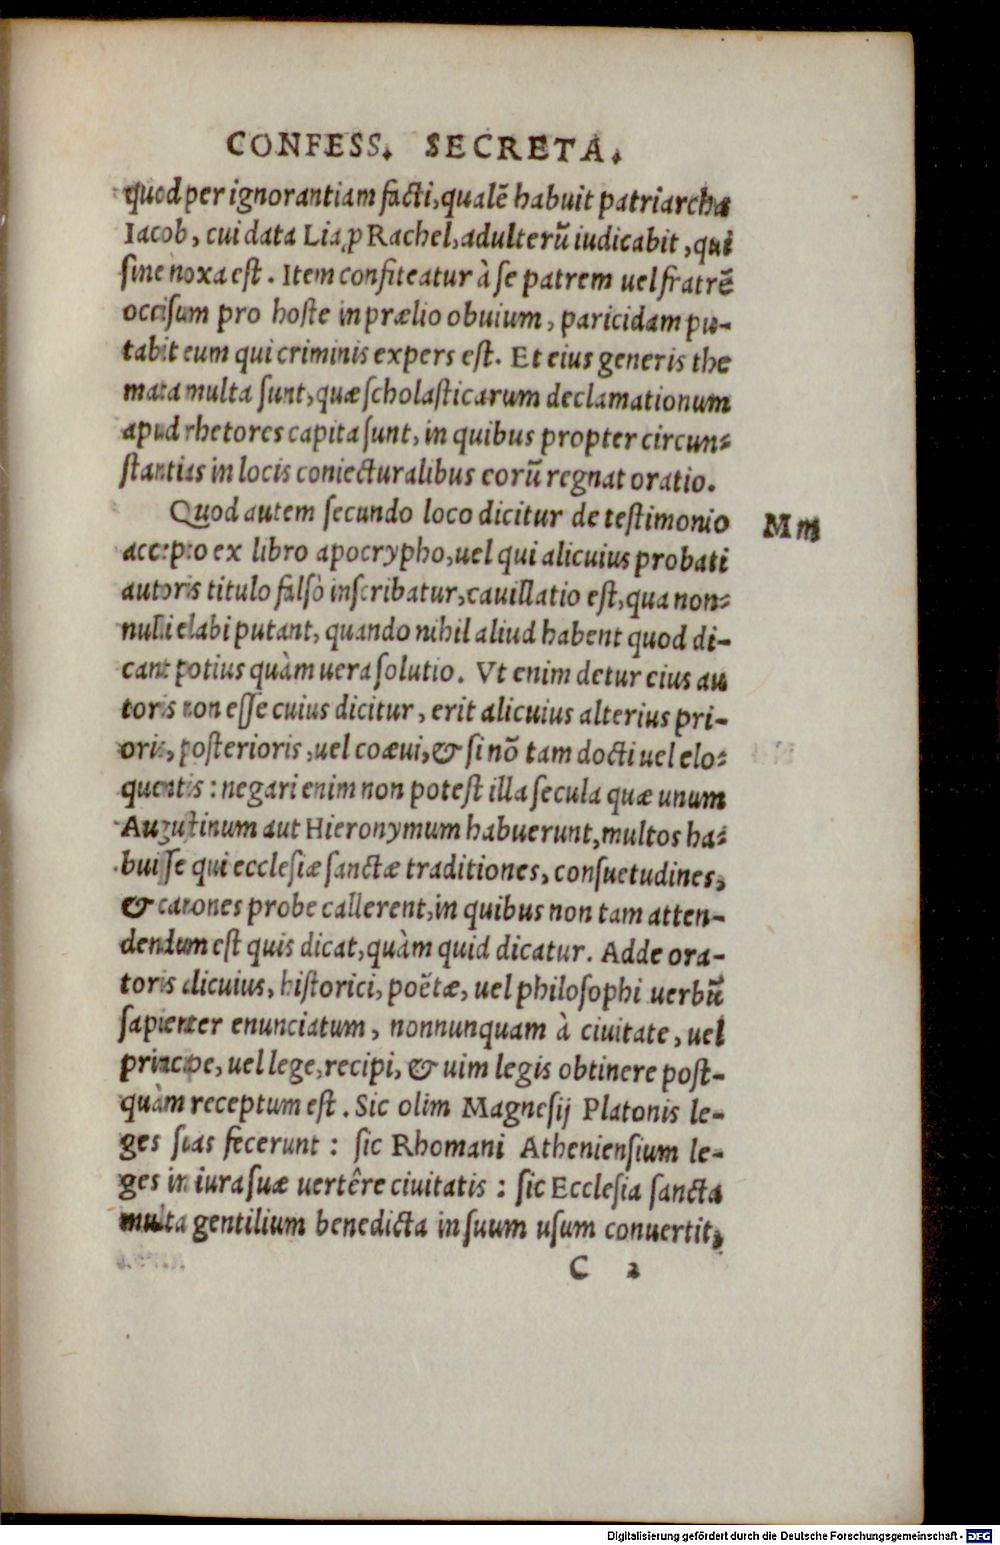 CONFESS. SECRETA.
quod per ignorantiam facti, qualẽ habuit patriarcha
Iacob, cui data Lia, ꝓ Rachel, adulterũ iudicabit, qui
sine noxa est. Item confiteatur à se patrem uel fratrẽ
occisum pro hoste in prælio obuium, paricidam pu-
tabit eum qui criminis expers est. Et eius generis the
mata multa sunt, quæ scholasticarum declamationum
apud rhetores capita sunt, in quibus propter circun-
stantias in locis coniecturalibus eorũ regnat oratio.
Quod autem secundo loco dicitur de testimonio
Mm
accepto ex libro apocrypho, uel qui alicuius probati
autoris titulo falsò inscribatur, cauillatio est, qua non-
nulli elabi putant, quando nihil aliud habent quod di-
cant potius quàm uera solutio. Vt enim detur eius au
toris non esse cuius dicitur, erit alicuius alterius pri-
oris, posterioris, uel coæui, & si nõ tam docti uel elo-
quentis: negari enim non potest illa secula quæ unum
Augustinum aut Hieronymum habuerunt, multos ha-
buisse qui ecclesiæ sanctæ traditiones, consuetudines,
& canones probe callerent, in quibus non tam atten-
dendum est quis dicat, quàm quid dicatur. Adde ora-
toris alicuius, historici, poëtæ, uel philosophi uerbũ
sapienter enunciatum, nonnunquam à ciuitate, uel
principe, uel lege, recipi, & uim legis obtinere post-
quàm receptum est. Sic olim Magnesij Platonis le-
ges suas fecerunt: sic Rhomani Atheniensium le-
ges in iura suæ uertêre ciuitatis: sic Ecclesia sancta
multa gentilium benedicta in suum usum conuertit,
C 2
Digitalisierung gefördert durch die Deutsche Forschungsgemeinschaft - DFG